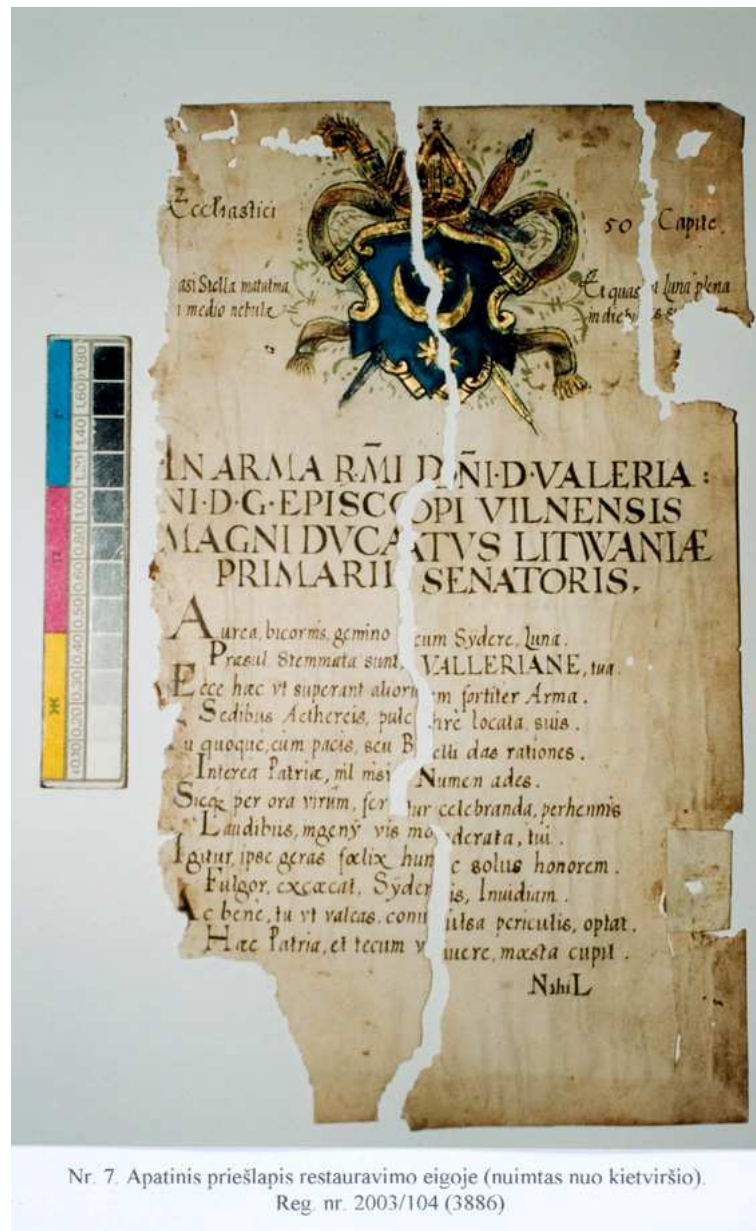 Ecclesiastici
50 Capite.
asi Stella matutina
medio nebulæ
Et quasi Luna plena
in diebus
IN ARMA R̃MI D̃ÑI·D·VALERIA:
NI·D·G·EPISCOPI VILNENSIS
MAGNI DVCATVS LITWANIÆ
PRIMARII SENATORIS.
Aurea, bicornis, gemino cum Sÿdere, Luna.
Præsul Stemmata sunt, VALLERIANE, tua.
Ecce hæc vt superant aliorum fortiter Arma.
Sedibus Aethereis, pulchrè locata, suis.
u quoque, cum pacis, seu Belli das rationes.
Interea Patriæ, nil nisi Numen ades.
Sicq; per ora virûm, fertur celebranda, perhennis
Laudibus, ingenÿ vis moderata, tui.
Igitur, ipse geras fœlix hunc solus honorem.
Fulgor, excæcat, Sÿderis, Inuidiam.
Ac bene, tu vt valeas, conuulsa periculis, optat.
Hæc Patria, et tecum viuere, mœsta cupit.
NihiL
1.80
1.60
1.40
1.20
1.00
0.80
0.60
0.50
0.40
0.30
0.20
0.10
Г
П
Ж
Nr. 7. Apatinis priešlapis restauravimo eigoje (nuimtas nuo kietviršio).
Reg. nr. 2003/104 (3886)